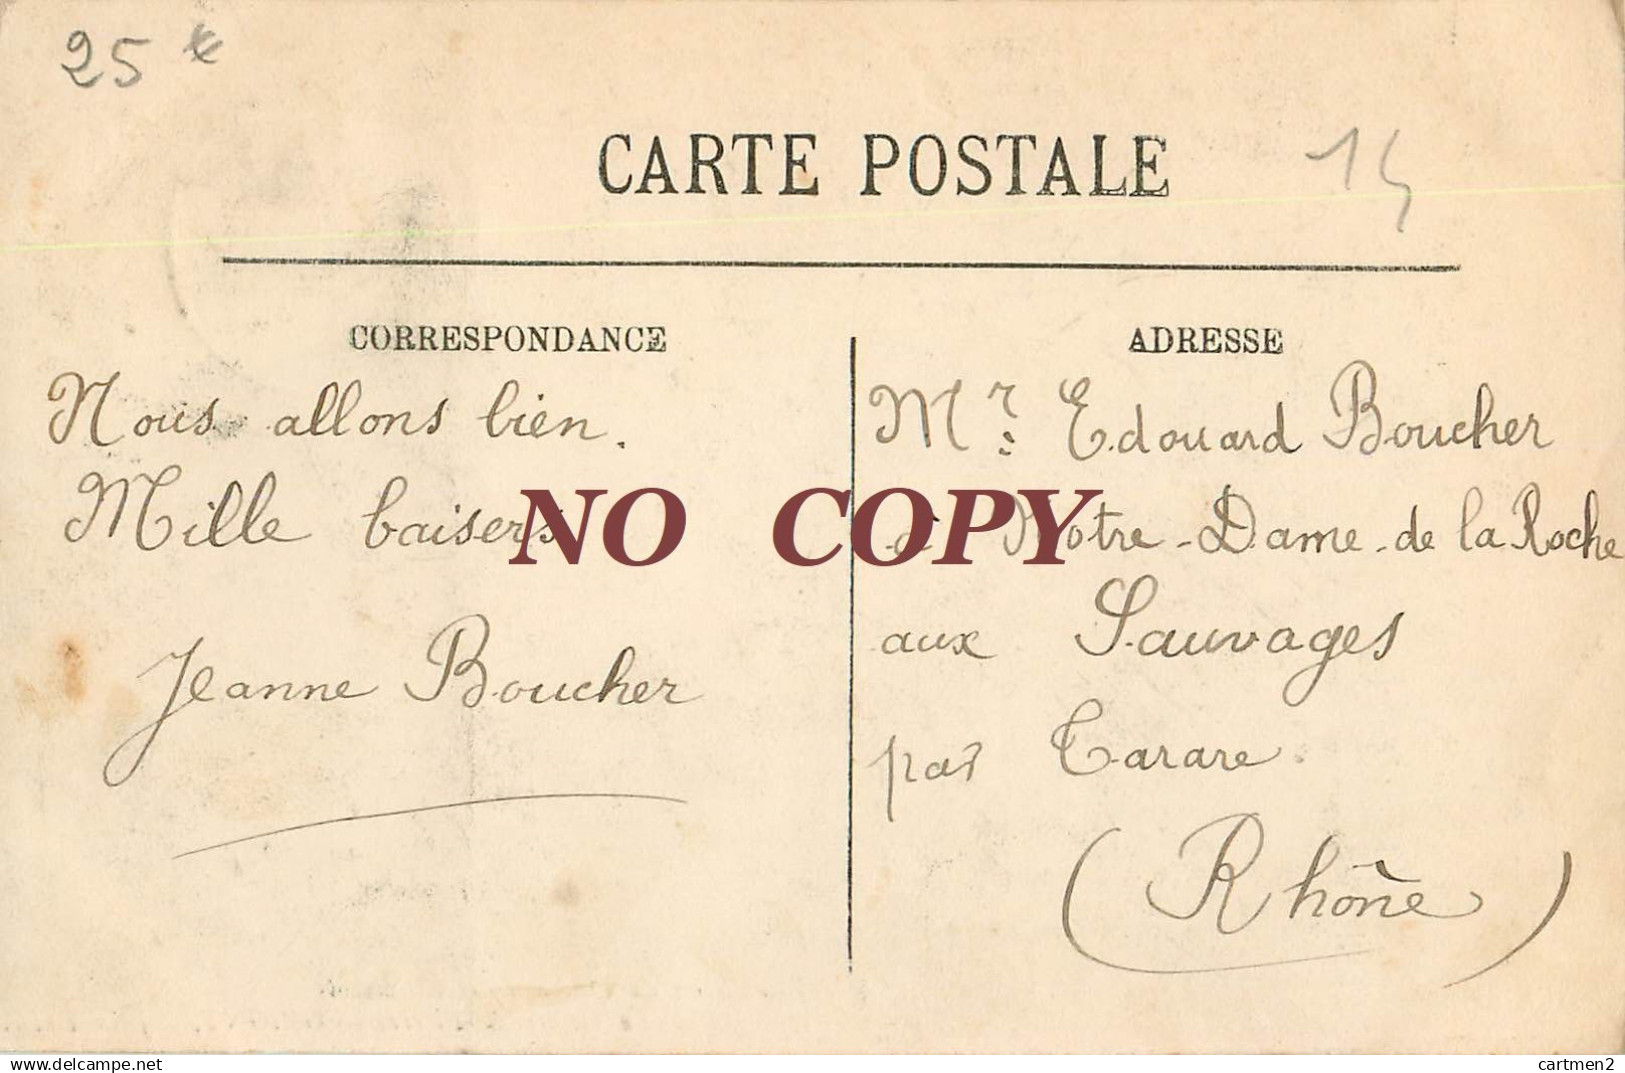 25 €
CARTE POSTALE
14
CORRESPONDANCE
Nous allons bien.
Mille baisers
Jeanne Boucher
ADRESSE
Mr. Edouard Boucher
à Notre-Dame-de la Roche
aux Sauvages
par Tarare.
(Rhône)
NO COPY
Website : http://www.delcampe.net
cartmen2